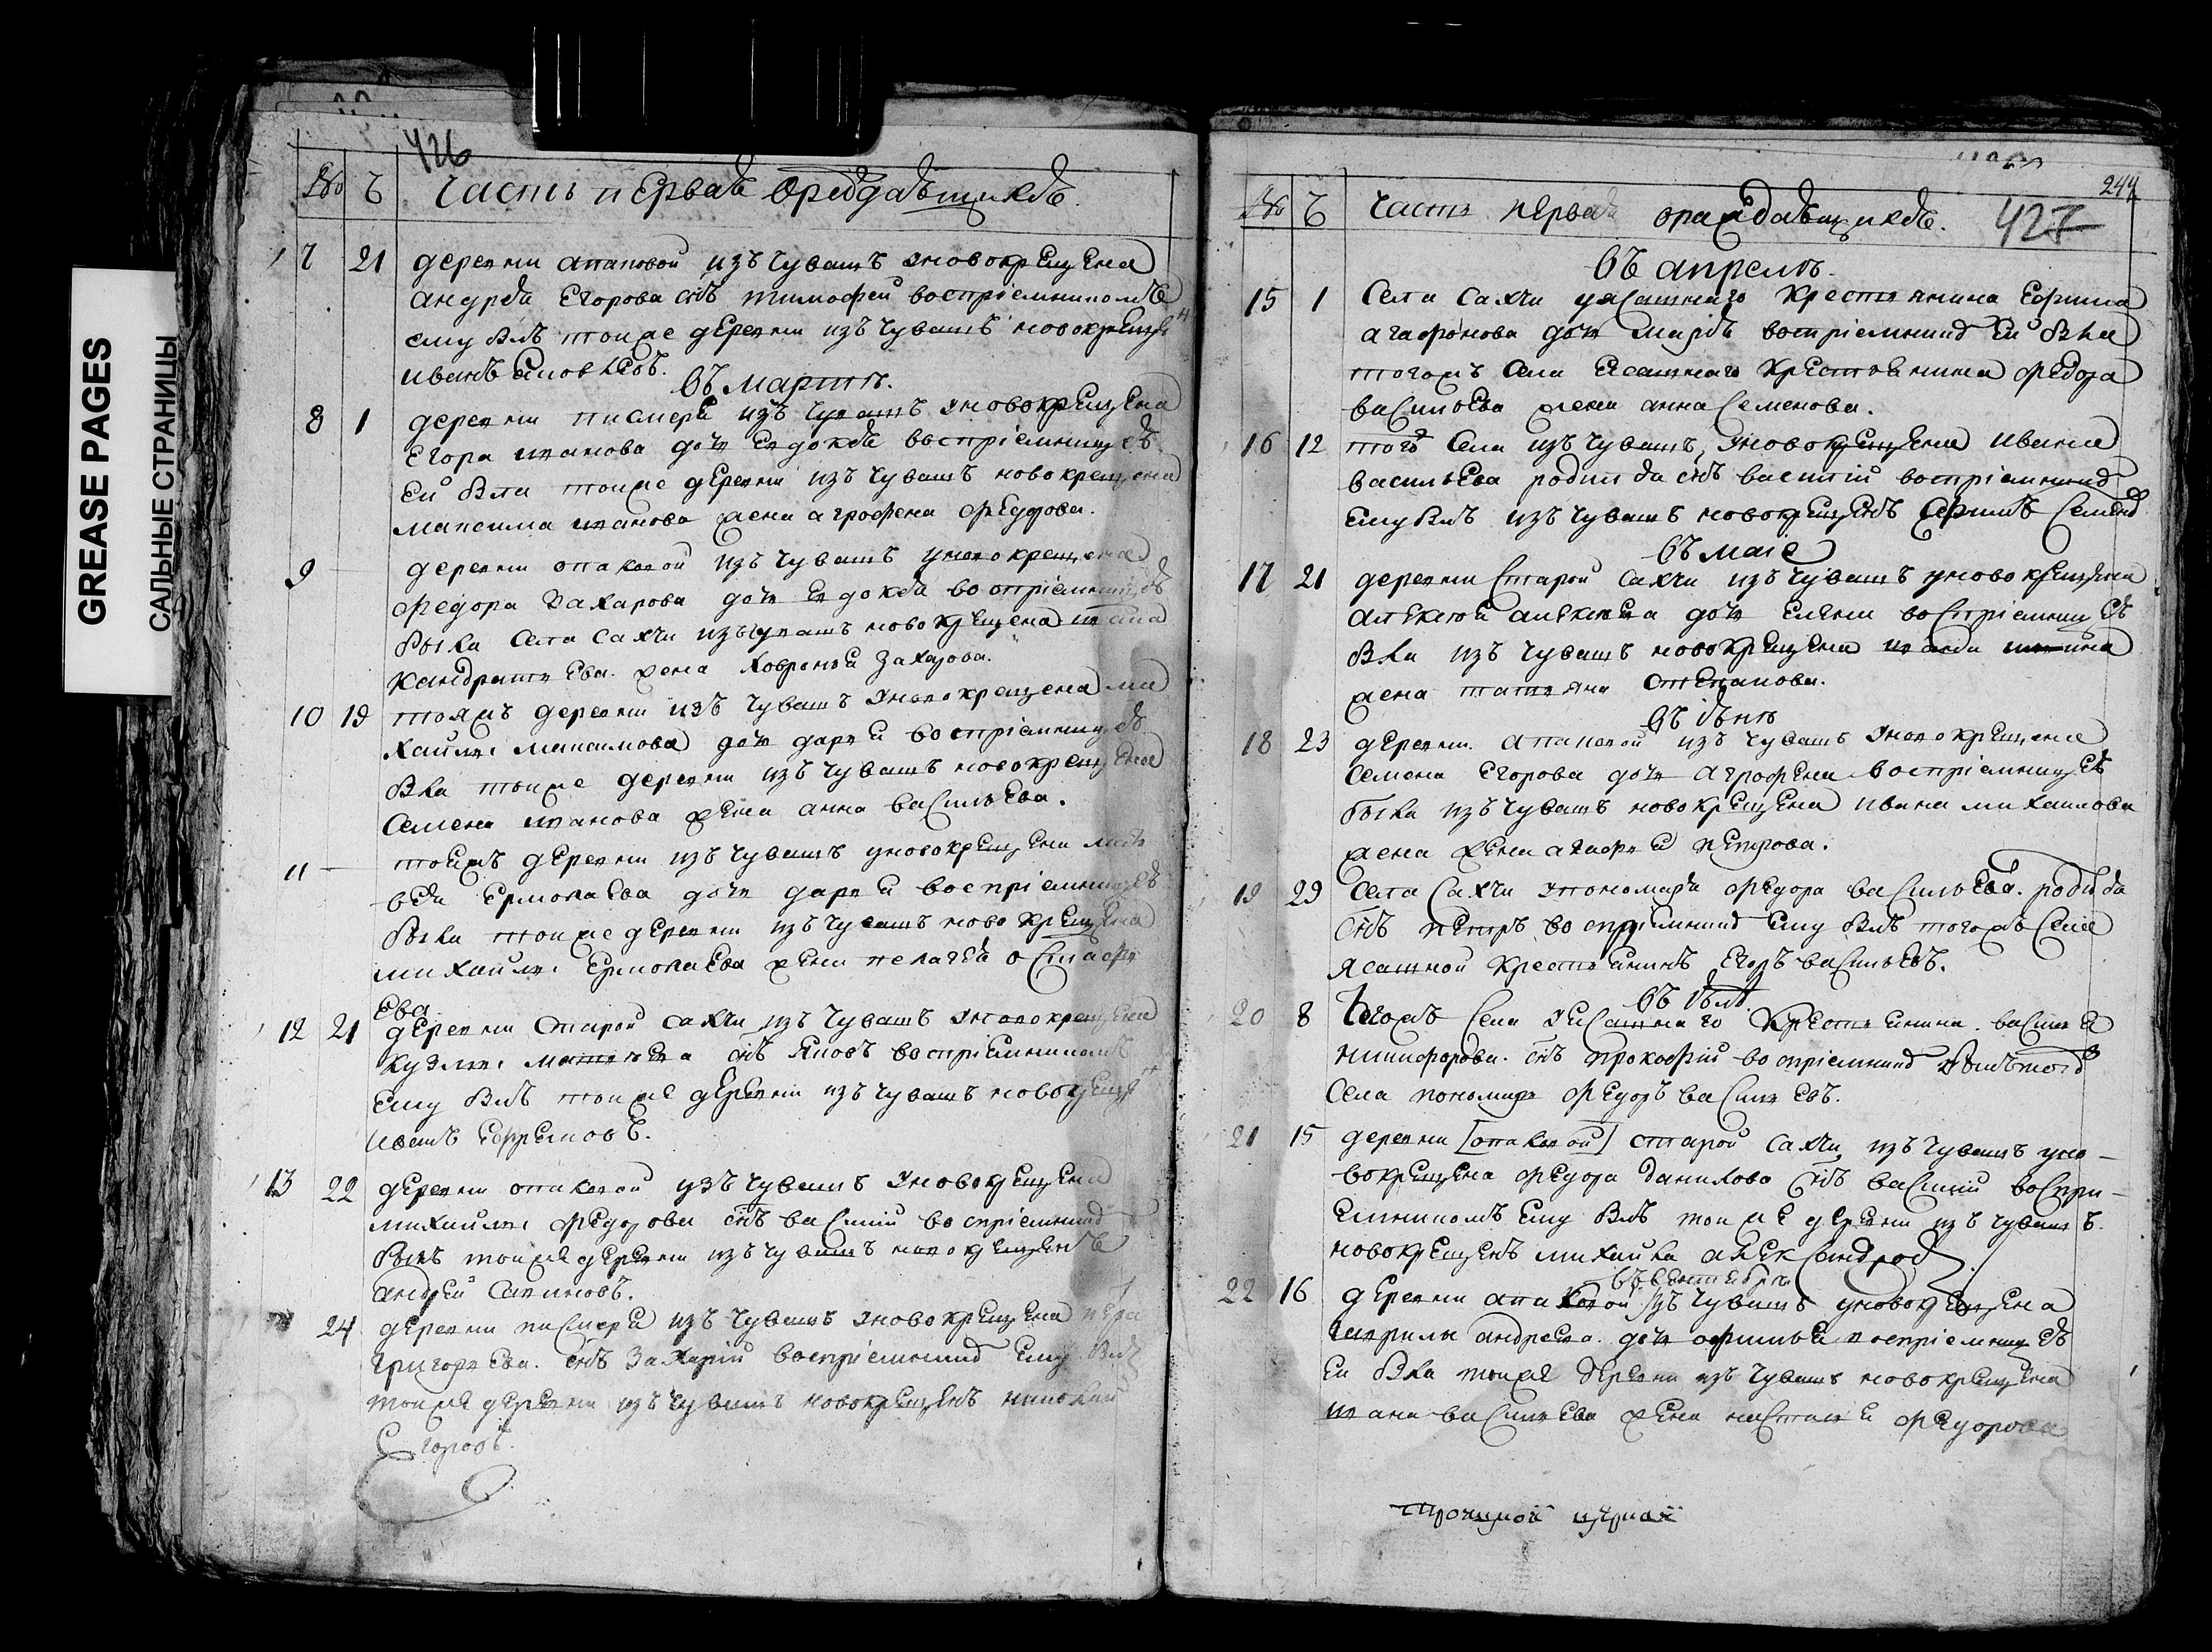 GREASE PAGES
САЛЬНЫЕ СТРАНИЦЫ
426
№ Ч Часть первая ораждающихся.
7 21 деревни апаковой изъ чувашъ уновокрещена
андрея Егорова снъ тимофей воспріемникомъ
ему былъ тоиже деревни изъ чувашъ новокрещен
иванъ
въ мартѣ.
8 1 деревни писмери изъ чувашъ уновокрещена
Егора иванова дочь Евдокея воспріемницею
ей была тоиже деревни изъ чувашъ новокрещена
максима иванова жена аграфена федорова.
9 — деревни опаковой изъ чувашъ уновокрещена
федора Захарова дочь Евдокея воспріемницею
была села сахчи изъ чувашъ новокрещена ивана
кандратьева жена Ховронья Захарова.
10 19 тояжъ деревни изъ чувашъ уновокрещена ми
хайлы максимова дочь дарья воспріемницею
была тоиже деревни изъ чувашъ новокрещена
Семена иванова жена анна васильева.
11 — тоежъ деревни изъ чувашъ уновокрещена мат
вея Ермолаева дочь дарья воспріемницею
была тоиже деревни изъ чувашъ новокрещена
михайлы Ермолаева жена пелагея остафь
Ева
12 21 деревни Старой сахчи изъ чувашъ уновокрещена
кузмы матвеева снъ яковъ воспріемникомъ
ему былъ тоиже деревни изъ чувашъ новокрещен
иванъ Ефремовъ.
13 22 деревни опаковой изъ чувашъ уновокрещена
михайлы федорова снъ василий воспріемник
былъ тоиже деревни изъ чувашъ новокрещенъ
андрей
24 деревни писмери изъ чувашъ уновокрещена
григорьева. снъ Захарий воспріемник ему былъ
тоиже деревни изъ чувашъ новокрещенъ николай
Егоровъ.
244
№ Ч Часть первая ораждающихся. 427
Въ апрелѣ.
15 1 Села Сахчи уясашнаго крестьянина Ефима
агафонова дочь марья воспріемница ей была
тогожъ села ясашнаго крестьянина федора
васильева жена анна Семенова.
16 12 того Села изъ чувашъ, уновокрещена ивана
васильева родился снъ василий воспріемник
Ему былъ изъ чувашъ новокрещенъ Ефимъ Семено
въ маіе
17 21 деревни Старой сахчи изъ чувашъ уновокрещена
алексея алексеева дочь елена воспріемницею
была изъ чувашъ новокрещена
жена татьяна Степанова.
въ іюнѣ
18 23 деревни апаковой изъ чувашъ уновокрещена
Семена Егорова дочь аграфена воспріемницею
была изъ чувашъ новокрещена ивана михаилова
жена жена агафья петрова.
19 29 Села Сахчи упономаря федора васильева. родился
снъ петръ воспріемник ему былъ тогожъ села
ясашной крестьянинъ Егоръ васильевъ.
въ іюлѣ
20 8 тогожъ села уясашнаго крестьянина. василья
никифорова. снъ прокофий воспріемник былъ того
села пономарь федоръ васильевъ.
21 15 деревни [опаковой] старой сахчи изъ чувашъ уно-
вокрещена федора данилова снъ василий воспри-
емникомъ ему былъ тоиже деревни изъ чувашъ.
новокрещенъ михайла александров
въ сентябрѣ
22 16 деревни апаковой изъ чувашъ уновокрещена
гаврилы андреева. дочь афимья воспріемницею
ей была тоиже деревни изъ чувашъ новокрещена
ивана васильева жена настасья федорова